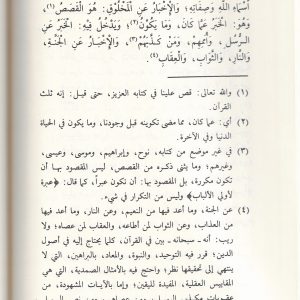 أَسْمَاءِ اللَّهِ وَصِفَاتِهِ؛ وَالْإِخْبَارُ عَنِ الْمَخْلُوقِ: هُوَ الْقَصَصُ(١)،
وَهُوَ: الْخَبَرُ عَمَّا كَانَ، وَمَا يَكُونُ(٢)؛ وَيَدْخُلُ فِيهِ: الْخَبَرُ عَنِ
الرُّسُلِ، وَأُمَمِهِمْ، وَمَنْ كَذَّبَهُمْ(٣)، وَالْإِخْبَارُ عَنِ الْجَنَّةِ،
وَالنَّارِ، وَالثَّوَابِ، وَالْعِقَابِ(٤).
(١) والله تعالى: قص علينا في كتابه العزيز، حتى قيل: إنه ثلث
القرآن.
(٢) أي: عما كان، مما مضى تكوينه قبل وجودنا، وما يكون في الحياة
الدنيا وفي الآخرة.
(٣) في غير موضع من كتابه، نوح، وإبراهيم، وموسى، وعيسى،
وغيرهم؛ وما يثنى ذكره من القصص، ليس المقصود بها أن
تكون مكررة، بل المقصود بها: أن تكون عبراً، كما قال: ﴿عبرة
لأولي الألباب﴾ وليس من التكرار في شيء.
(٤) عن الجنة، وما أعد فيها من النعيم، وعن النار، وما أعد فيها
من العذاب، وعن الثواب لمن أطاعه، والعقاب لمن عصاه؛ ولا
ريب: أنه ـ سبحانه ـ بين في القرآن، كلما يحتاج إليه في أصول
الدين؛ قرر فيه التوحيد، والنبوة، والمعاد، بالبراهين، التي لا
ينتهي إلى تحقيقها نظر؛ واحتج فيه بالأمثال الصمدية، التي هي
المقاييس العقلية، المفيدة لليقين؛ وإما بالآيات المشهودة، من